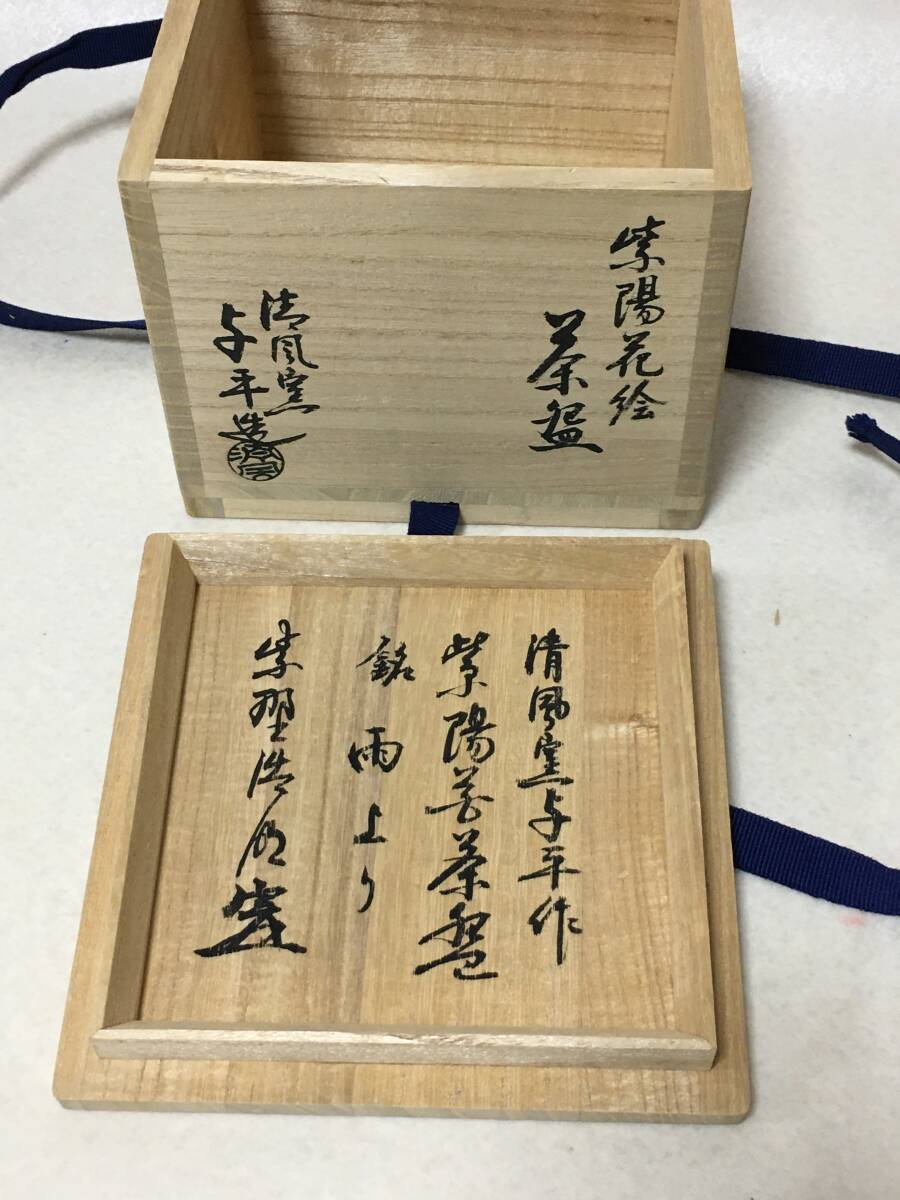 紫陽花絵
茶盌
清風窯
与平造
清風窯与平作
紫陽花茶盌
銘 雨上り
紫野浩明